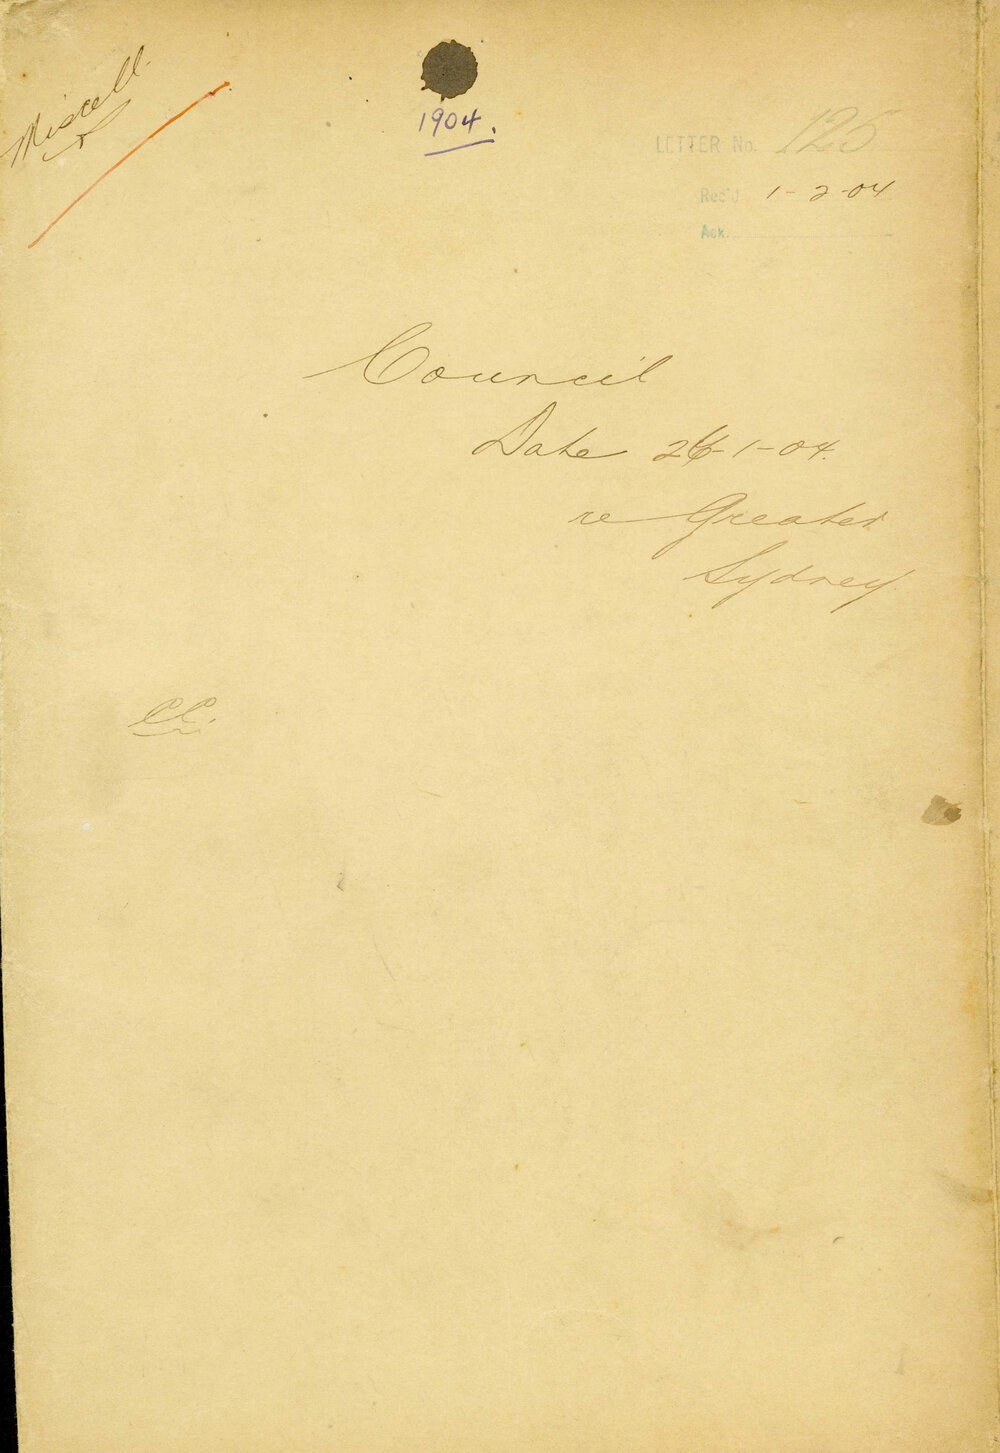 Miscell.
1904.
LETTER No. 125
Rec'd 1-2-04
Ack.
Council
Date 26-1-04.
re Greater
Sydney
CC.